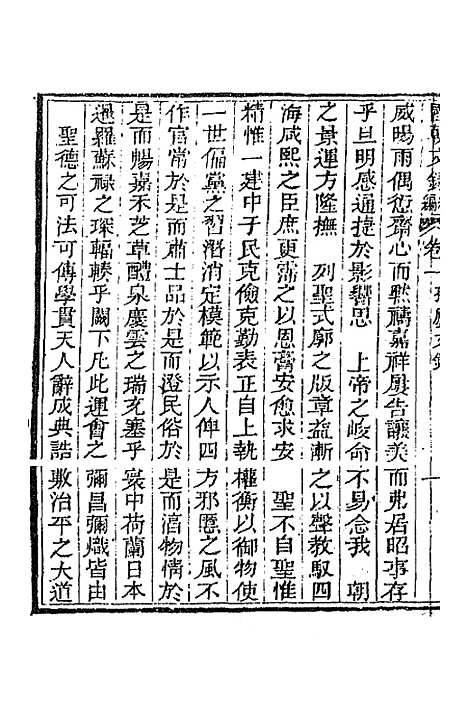 國朝文錄續編 卷一
威暘雨偶愆齋心而默禱嘉祥屢告讓美而弗居昭事存
乎旦明感通捷於影響思 上帝之峻命不易念我 朝
之景運方隆撫 列聖式廓之版章益漸之以聲教馭四
海咸熙之臣庶更濡之以恩膏安愈求安 聖不自聖惟
精惟一建中于民克儉克勤表正自上執權衡以御物使
一世偏黨之習潛消定模範以示人俾四方邪慝之風不
作官常於是而肅士品於是而澄民俗於是而淳物情於
是而暢嘉禾芝草醴泉慶雲之瑞充塞乎寰中荷蘭日本
暹羅蘇祿之琛輻輳乎闕下凡此運會之彌昌彌熾皆由
聖德之可法可傳學貫天人辭成典誥敷治平之大道